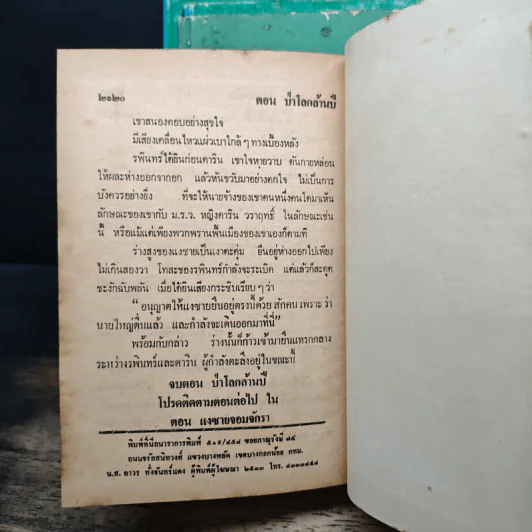 ๒๑๒๐ ตอน ป่าโลกล้านปี
เขาสนองตอบอย่างสุขใจ
มีเสียงเคลื่อนไหวแผ่วเบาใกล้ ๆ ทางเบื้องหลัง
รพินทร์ได้ยินก่อนดาริน เขาใจหายวาบ ดันกายหล่อน
ให้ผละห่างออกจากอก แล้วหันขวับมาอย่างตกใจ ไม่เป็นการ
บังควรอย่างยิ่ง ที่จะให้นายจ้างของเขาคนหนึ่งคนใดมาเห็น
ลักษณะของเขากับ ม.ร.ว. หญิงดาริน วราฤทธิ์ ในลักษณะเช่น
นี้ หรือแม้แต่เพียงพวกพรานพื้นเมืองของเขาเองก็ตามที
ร่างสูงของแงซายเป็นเงาตะคุ่ม ยืนอยู่ห่างออกไปเพียง
ไม่เกินสองวา โทสะของรพินทร์กำลังจะระเบิด แต่แล้วก็สะดุด
ชะงักฉับพลัน เมื่อได้ยินเสียงกระซิบเรียบ ๆ ว่า
“อนุญาตให้แงซายยืนอยู่ตรงนี้ด้วย สักคน เพราะ ว่า
นายใหญ่ตื่นแล้ว และกำลังจะเดินออกมาที่นี่”
พร้อมกับกล่าว ร่างนั้นก็ก้าวเข้ามายืนแทรกกลาง
ระหว่างรพินทร์และดาริน ผู้กำลังตะลึงอยู่ในขณะนี้
จบตอน ป่าโลกล้านปี
โปรดติดตามตอนต่อไป ใน
ตอน แงซายจอมจักรา
พิมพ์ที่นีลนาราการพิมพ์ ๕๐๙/๔๕๘ ซอยภาณุรังษี ๗๕
ถนนจรัลสนิทวงศ์ แขวงบางพลัด เขตบางกอกน้อย กทม.
น.ส. ถาวร ทั่งจันทร์แดง ผู้พิมพ์ผู้โฆษณา ๒๕๓๓ โทร. ๔๓๓๓๔๕๔